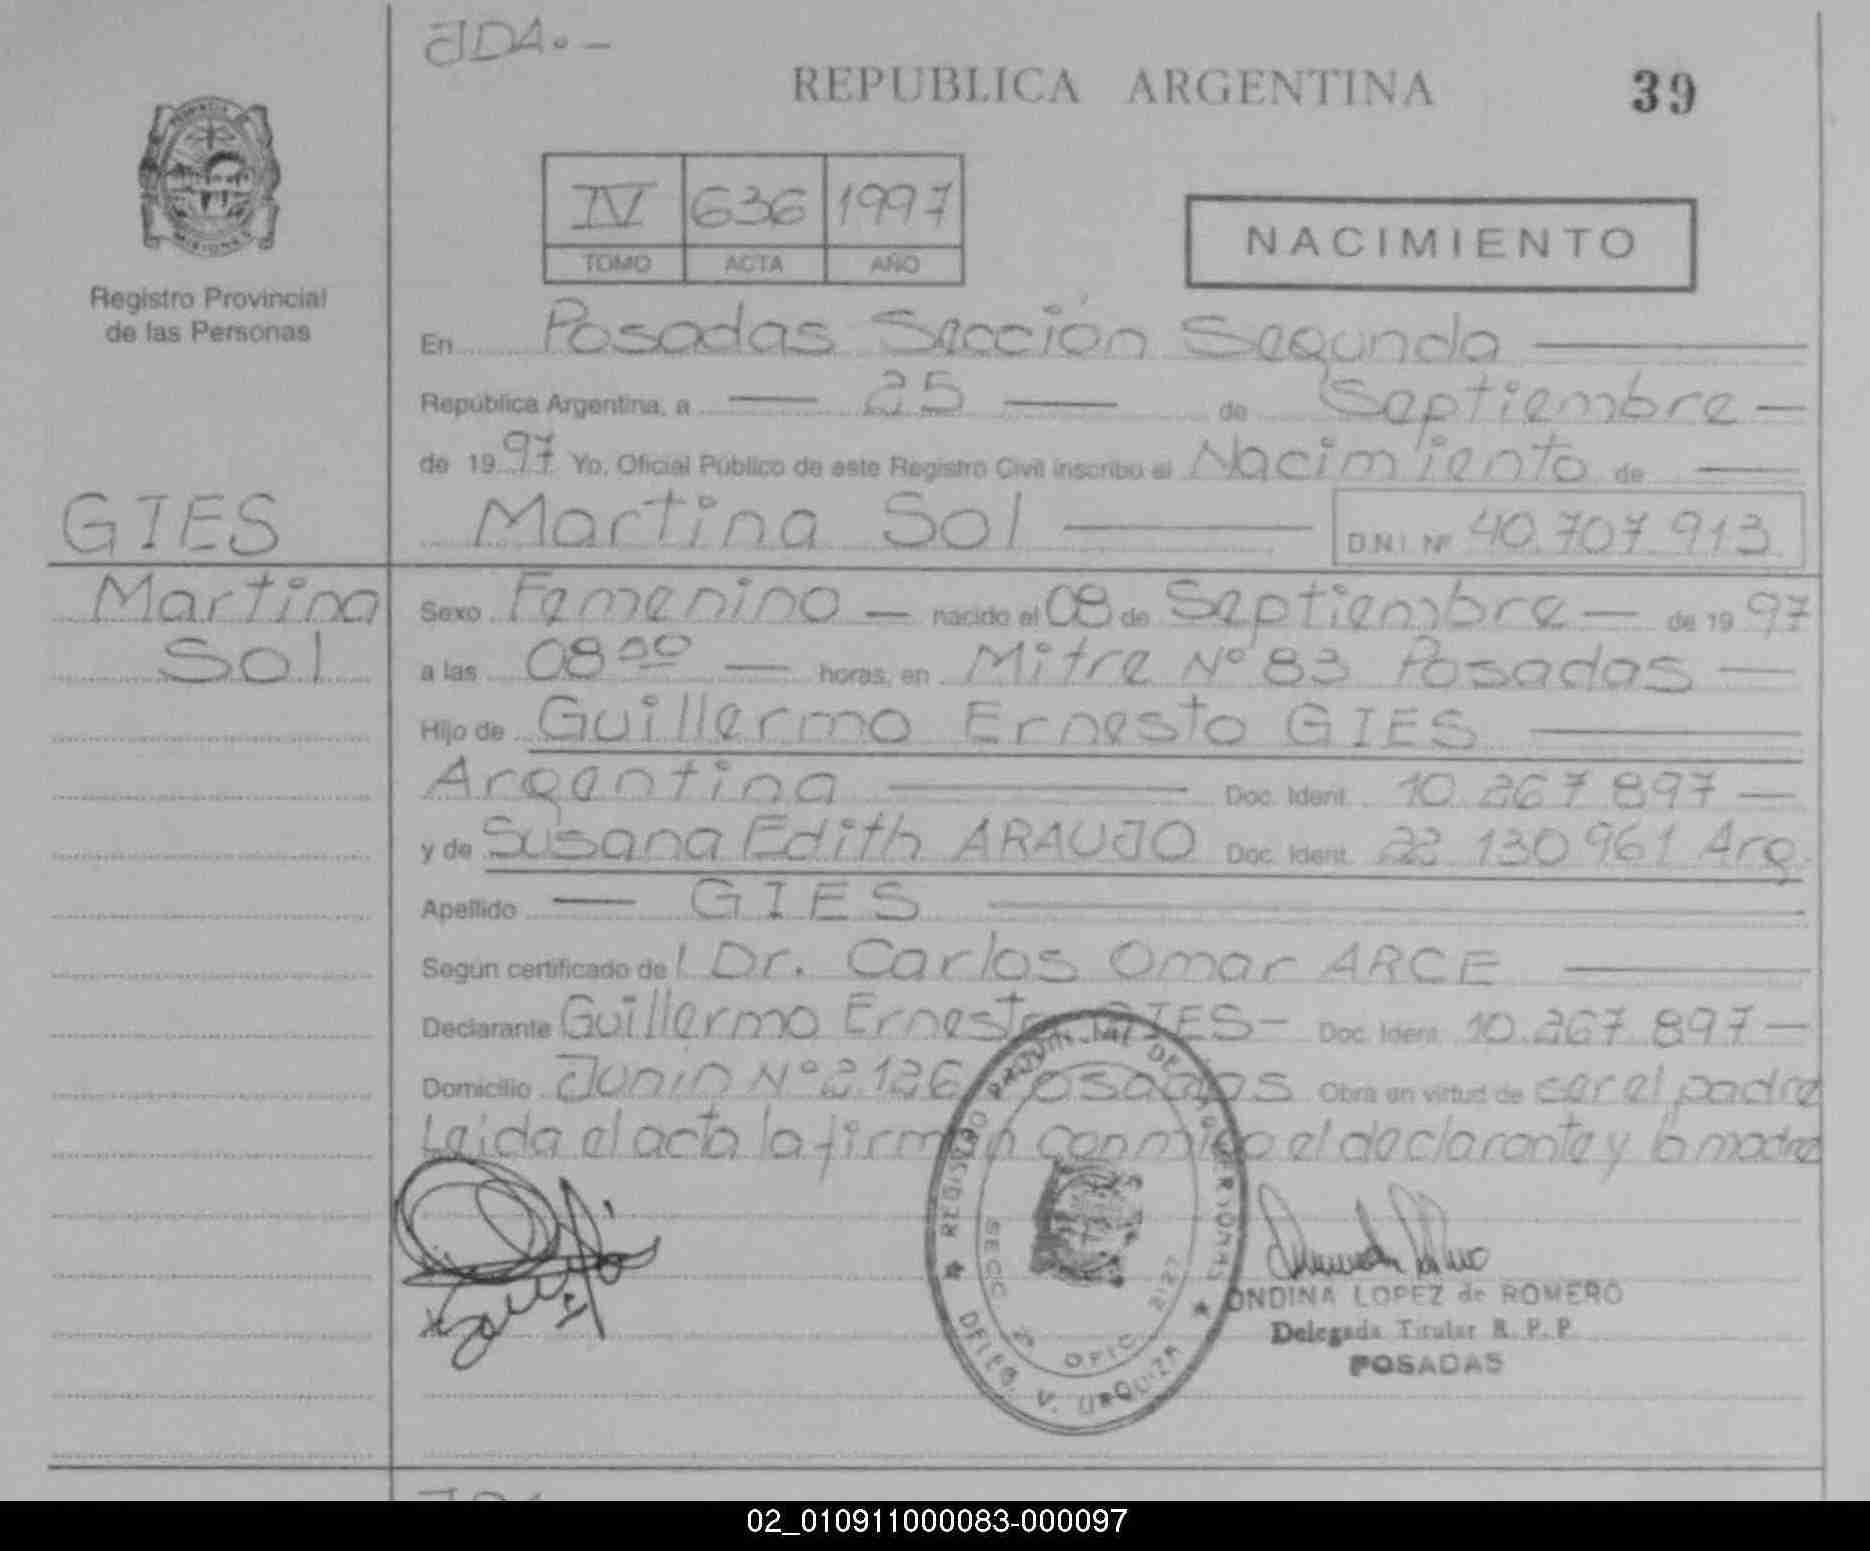 JDA.-
REPUBLICA ARGENTINA
39
IV 636 1997
TOMO ACTA AÑO
NACIMIENTO
PROVINCIA
MISIONES
Registro Provincial
de las Personas
En Posadas Sección Segunda
República Argentina, a — 25 — de Septiembre —
de 1997 Yo, Oficial Público de este Registro Civil inscribo el Nacimiento de —
GIES
Martina Sol — D.N.I. Nº 40.707.913
Martina
Sol
Sexo Femenino — nacido el 08 de Septiembre — de 1997
a las 08 00 — horas, en Mitre Nº 83 Posadas —
Hijo de Guillermo Ernesto GIES —
Argentina — Doc. Ident. 10.267.897 —
y de Susana Edith ARAUJO Doc. Ident. 22.130.961 Arg.
Apellido — GIES —
Según certificado del Dr. Carlos Omar ARCE —
Declarante Guillermo Ernesto GIES — Doc. Ident. 10.267.897 —
Domicilio Junín Nº 2.126 Posadas Obra en virtud de ser el padre
Leida el acta la firman conmigo el declarante y la madre
REGISTRO PROVINCIAL DE LAS PERSONAS
SECC 2ª OFIC 2127
DELEG. V. URQUIZA
ONDINA LOPEZ de ROMERO
Delegada Titular R. P. P.
POSADAS
02_010911000083-000097